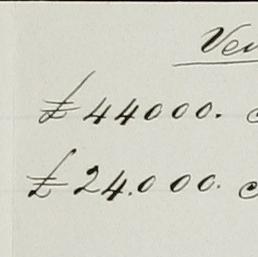 Ver
£44000. c
£24.000. c